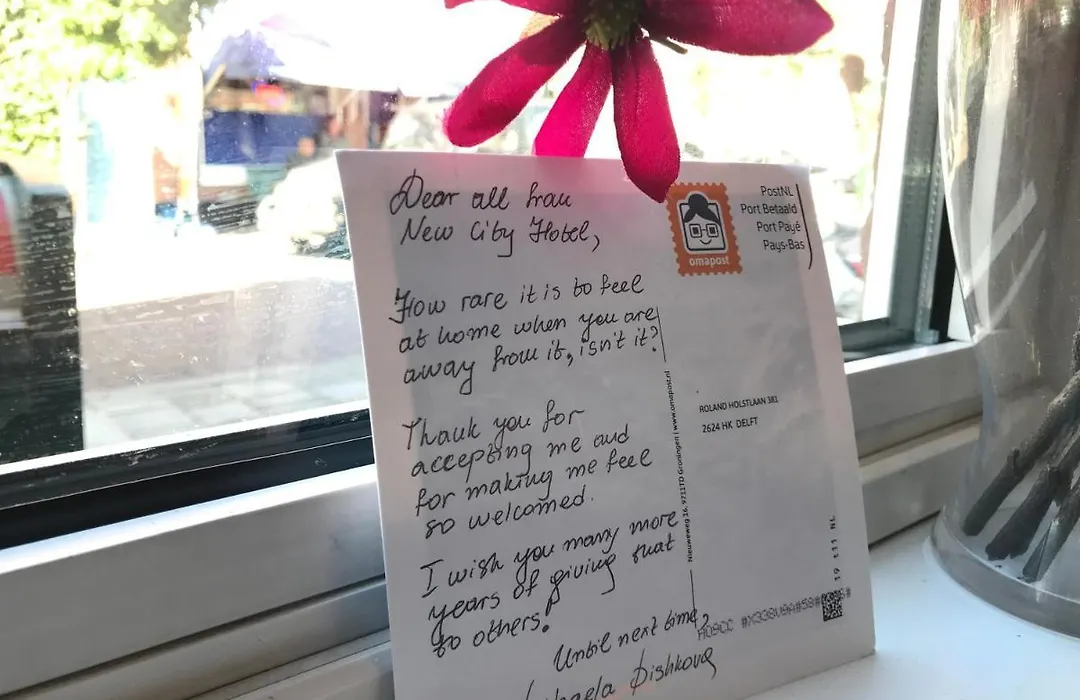 Dear all from
New City Hotel,
How rare it is to feel
at home when you are
away from it, isn't it?
Thank you for
accepting me and
for making me feel
so welcomed.
I wish you many more
years of giving that
to others!
Until next time,
Dishkova
omapost
PostNL
Port Betaald
Port Payé
Pays-Bas
ROLAND HOLSTLAAN 381
2624 HK DELFT
Nieuweweg 16, 9711TD Groningen | www.omapost.nl